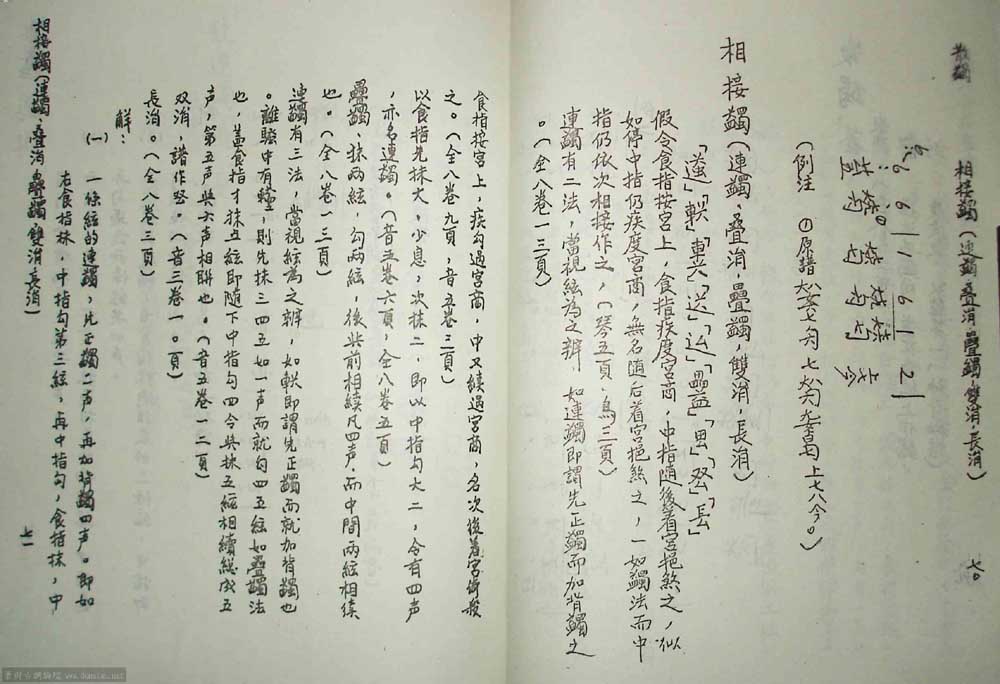 相接蠲（連蠲，疊涓，疊蠲，雙涓，長涓）
七〇
6 6 1 1 6 1 2
（例注 ①原譜
相接蠲（連蠲，疊涓，疊蠲，雙涓，長涓）
假令食指按宮上，食指疾度宮商，中指隨後着宮挹煞之，似
如停中指仍疾度宮商，無名随后着宮挹煞之，一如蠲法而中
指仍依次相接作之，（琴五頁，烏三頁）
連蠲有二法，當視絃為之辨，如連蠲即謂先正蠲而加背蠲之
。（仝八卷一三頁）
食指按宮上，疾勾過宮商，中又續過宮商，名次後着宮
之。（仝八卷九頁，音五卷三頁）
以食指先抹大，少息，次抹二，即以中指勾大二，令有四声
，亦名連蠲。（音五卷六頁，仝八卷五頁）
疊蠲，抹两絃，勾两絃，後先前相续凡四声，而中間两絃相续
也。（仝八卷一三頁）
連蠲有三法，當視絃為之辨，如軼即謂先正蠲而就加背蠲也
。離騷中有，則先抹三四五如一声而就勾四五絃如疊蠲法
也，盖食指才抹五絃即隨下中指勾四令與抹五絃相續總成五
声，第五声與六声相聯也。（音五卷一二頁）
双涓，譜作䀏。（音三卷一〇頁）
長涓。（仝八卷三頁）
解：
（一）一條絃的連蠲，先正蠲二声，再加背蠲四声。即如
右食指抹，中指勾第三絃，再中指勾，食指抹，中
相接蠲（連蠲，疊涓，疊蠲，雙涓，長涓）
七一